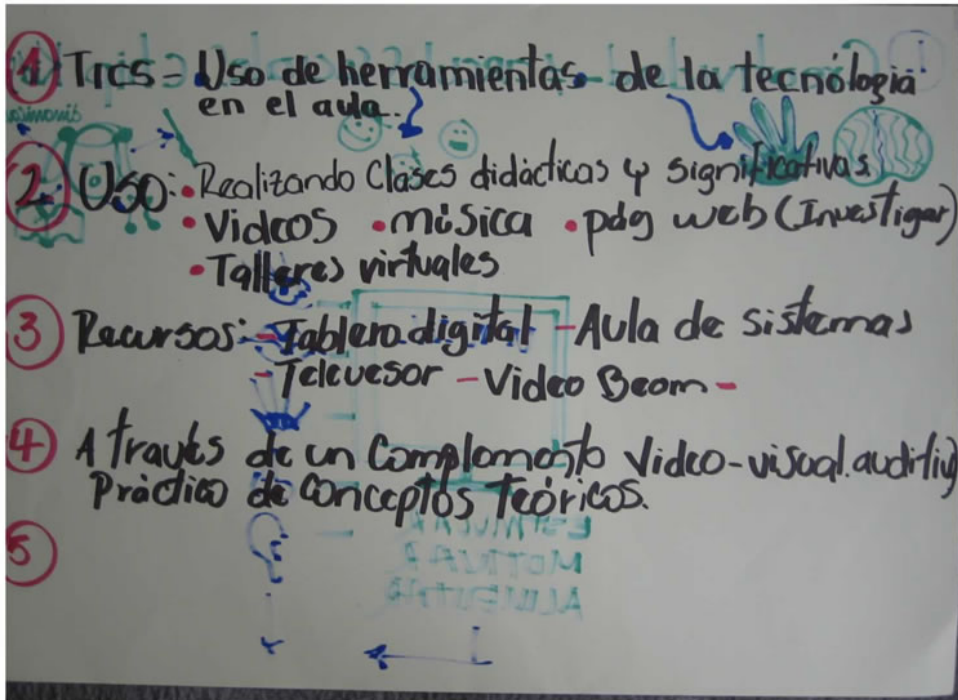 1 Tics = Uso de herramientas de la tecnólogia
en el aula.
2 Uso: • Realizando Clases didácticas y significativas
• Videos • música • pág web (Investigar)
• Talleres virtuales
3 Recursos: - Tablero digital - Aula de sistemas
- Televesor - Video Beam -
4 A través de un Complemento Video-visual.auditivo
Práctico de conceptos Teóricos.
5
ESTIMULAR
MOTIVAR